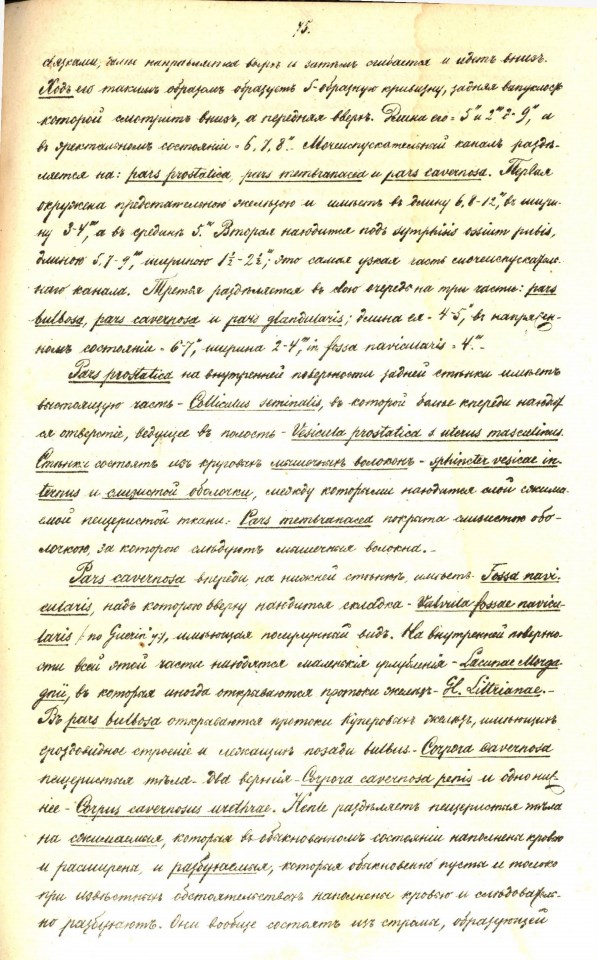 75.
связками, далѣе направляется вверхъ и затѣмъ сгибается и идетъ внизъ.
Ходъ его такимъ образомъ образуетъ S-образную кривизну, задняя выпуклость
которой смотритъ внизъ, а передняя вверхъ. Длина его = 5" и 2'" - 9", а
въ эректальномъ состояніи = 6, 7, 8". Мочеиспускательный каналъ раздѣ-
ляется на: pars prostatica, pars membranacea и pars cavernosa. Первая
окружена предстательною желѣзою и имѣетъ въ длину 6, 8-12'", въ шири-
ну 3-4'", а въ срединѣ 5.'" Вторая находится подъ symphisis ossium pubis,
длиною 5, 7-9'", шириною 1½-2½'"; это самая узкая часть мочеиспускатель-
наго канала. Третья раздѣляется въ свою очередь на три части: pars
bulbosa, pars cavernosa и pars glandularis; длина ея = 4-5", въ напряжен-
номъ состояніи = 6-7", ширина 2-4'", in fossa navicularis = 4.'"
Pars prostatica на внутренней поверхности задней стѣнки имѣетъ
выстоящую часть - Colliculus seminalis, въ которой болѣе кпереди находит-
ся отверстіе, ведущее въ полость - Vesicula prostatica s uterus masculinus.
Стѣнки состоятъ изъ круговыхъ мышечныхъ волоконъ - sphincter vesicae in-
ternus и слизистой оболочки, между которыми находится слой сжима-
емой пещеристой ткани. Pars membranacea покрыта слизистою обо-
лочкою, за которою слѣдуютъ мышечныя волокна. -
Pars cavernosa впереди на нижней стѣнкѣ имѣетъ Fossa navi-
cularis, надъ которою вверху находится складка - Valvula fossae navicu-
laris (по Guerin'у), имѣющая полулунный видъ. На внутренней поверхно-
сти всей этой части находятся маленькія углубленія - Lacunae Morga-
gnii, въ которыя иногда открываются протоки желѣзъ - Gl. Littrianae. -
Въ pars bulbosa открываются протоки Куперовыхъ желѣзъ, имѣющихъ
гроздовидное строеніе и лежащихъ позади bulbus - Corpora cavernosa
пещеристыя тѣла - два верхнія - Corpora cavernosa penis и одно ниж-
нее - Corpus cavernosus urethrae. Henle раздѣляетъ пещеристыя тѣла
на сжимаемыя, которыя въ обыкновенномъ состояніи наполнены кровью
и расширены, и разбухаемыя, которыя обыкновенно пусты и только
при извѣстныхъ обстоятельствахъ наполнены кровью и слѣдователь-
но разбухаютъ. Они вообще состоятъ изъ стромы, образующей